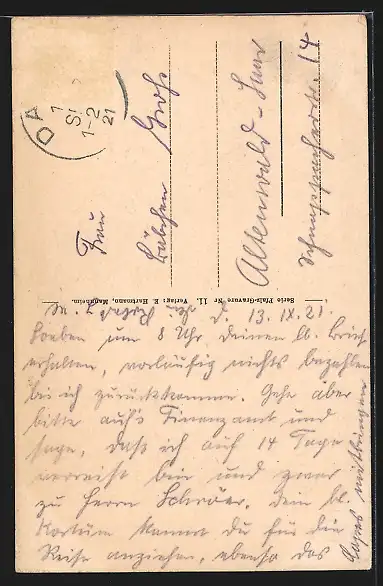 DA
1
1-2
21
Frau
Lübchen Groß
Altenwald-Saar
Schnappacherstr. 14
Serie Pfalz-Gravure Nr 11. Verlag: E. Hartmann, Mannheim.
d. 13. IX. 21.
Soeben um 8 Uhr deinen lb. Brief
erhalten, vorläufig nichts bezahlen
bis ich zurückkomme. Gehe aber
bitte auf's Finanzamt und
sage, daß ich auf 14 Tage
verreist bin und zwar
zu Herrn Schroer. Dein bl.
Kostüm kannst du für die
Reise anziehen, ebenso das
Capes mitbringen